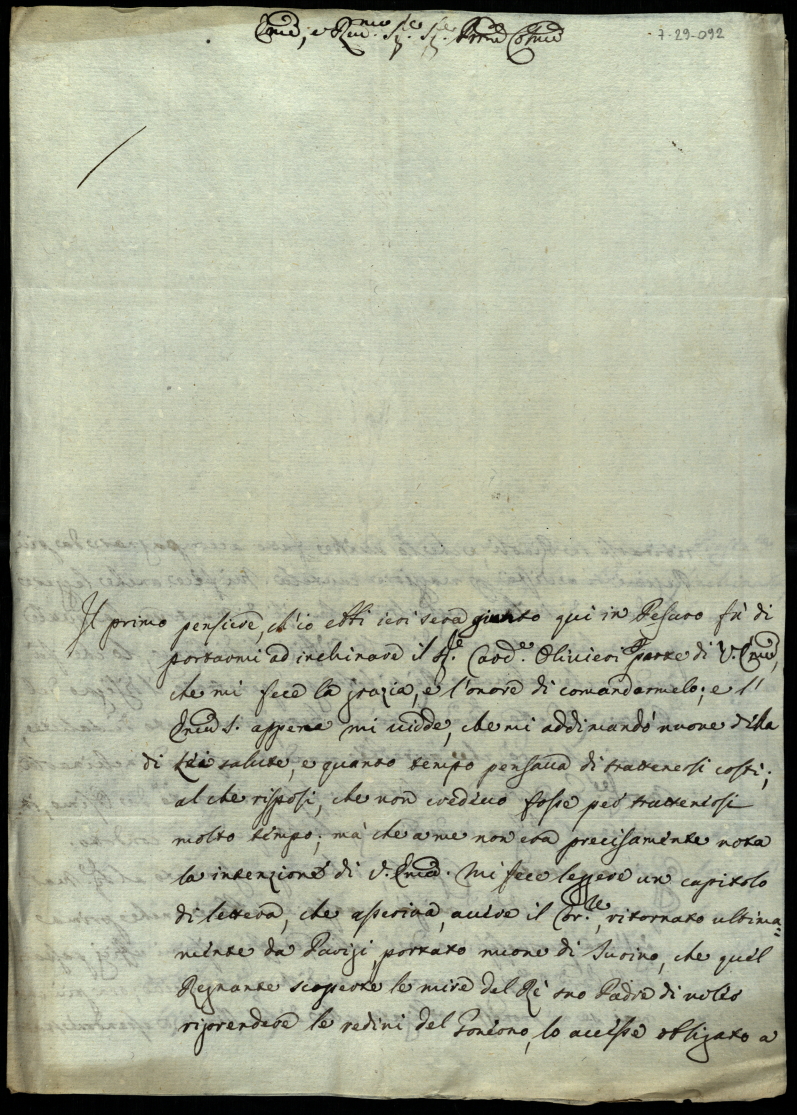 Em̃o, e Rev.mo Sig.re Sig.re Pr͠on Col͠mo
7-29-092
Il primo pensiere, ch'io ebbi ieri sera giunto qui in Pesaro fù di
portarmi ad inchinare il Sig.e Card.e Olivieri p parte di V. Em̃a,
che mi fece la grazia, e l'onore di comandarmelo; e l'
Em̃a S. appena mi vidde, che mi addimandò nuove della
di Lei salute, e quanto tempo pensava di trattenersi costì;
al che risposi, che non credevo fosse p̃ trattenersi
molto tempo; mà che a me non era precisamente nota
la intenzione di V. Em̃a. Mi fece leggere un capitolo
di lettera, che asseriva, avere il Cor.le, ritornato ultima=
mente da Parigi, portato nuove di Turino, che quel
Regnante scoperte le mire del Rè suo Padre di voler
riprendere le redini del Governo, lo avesse obligato a